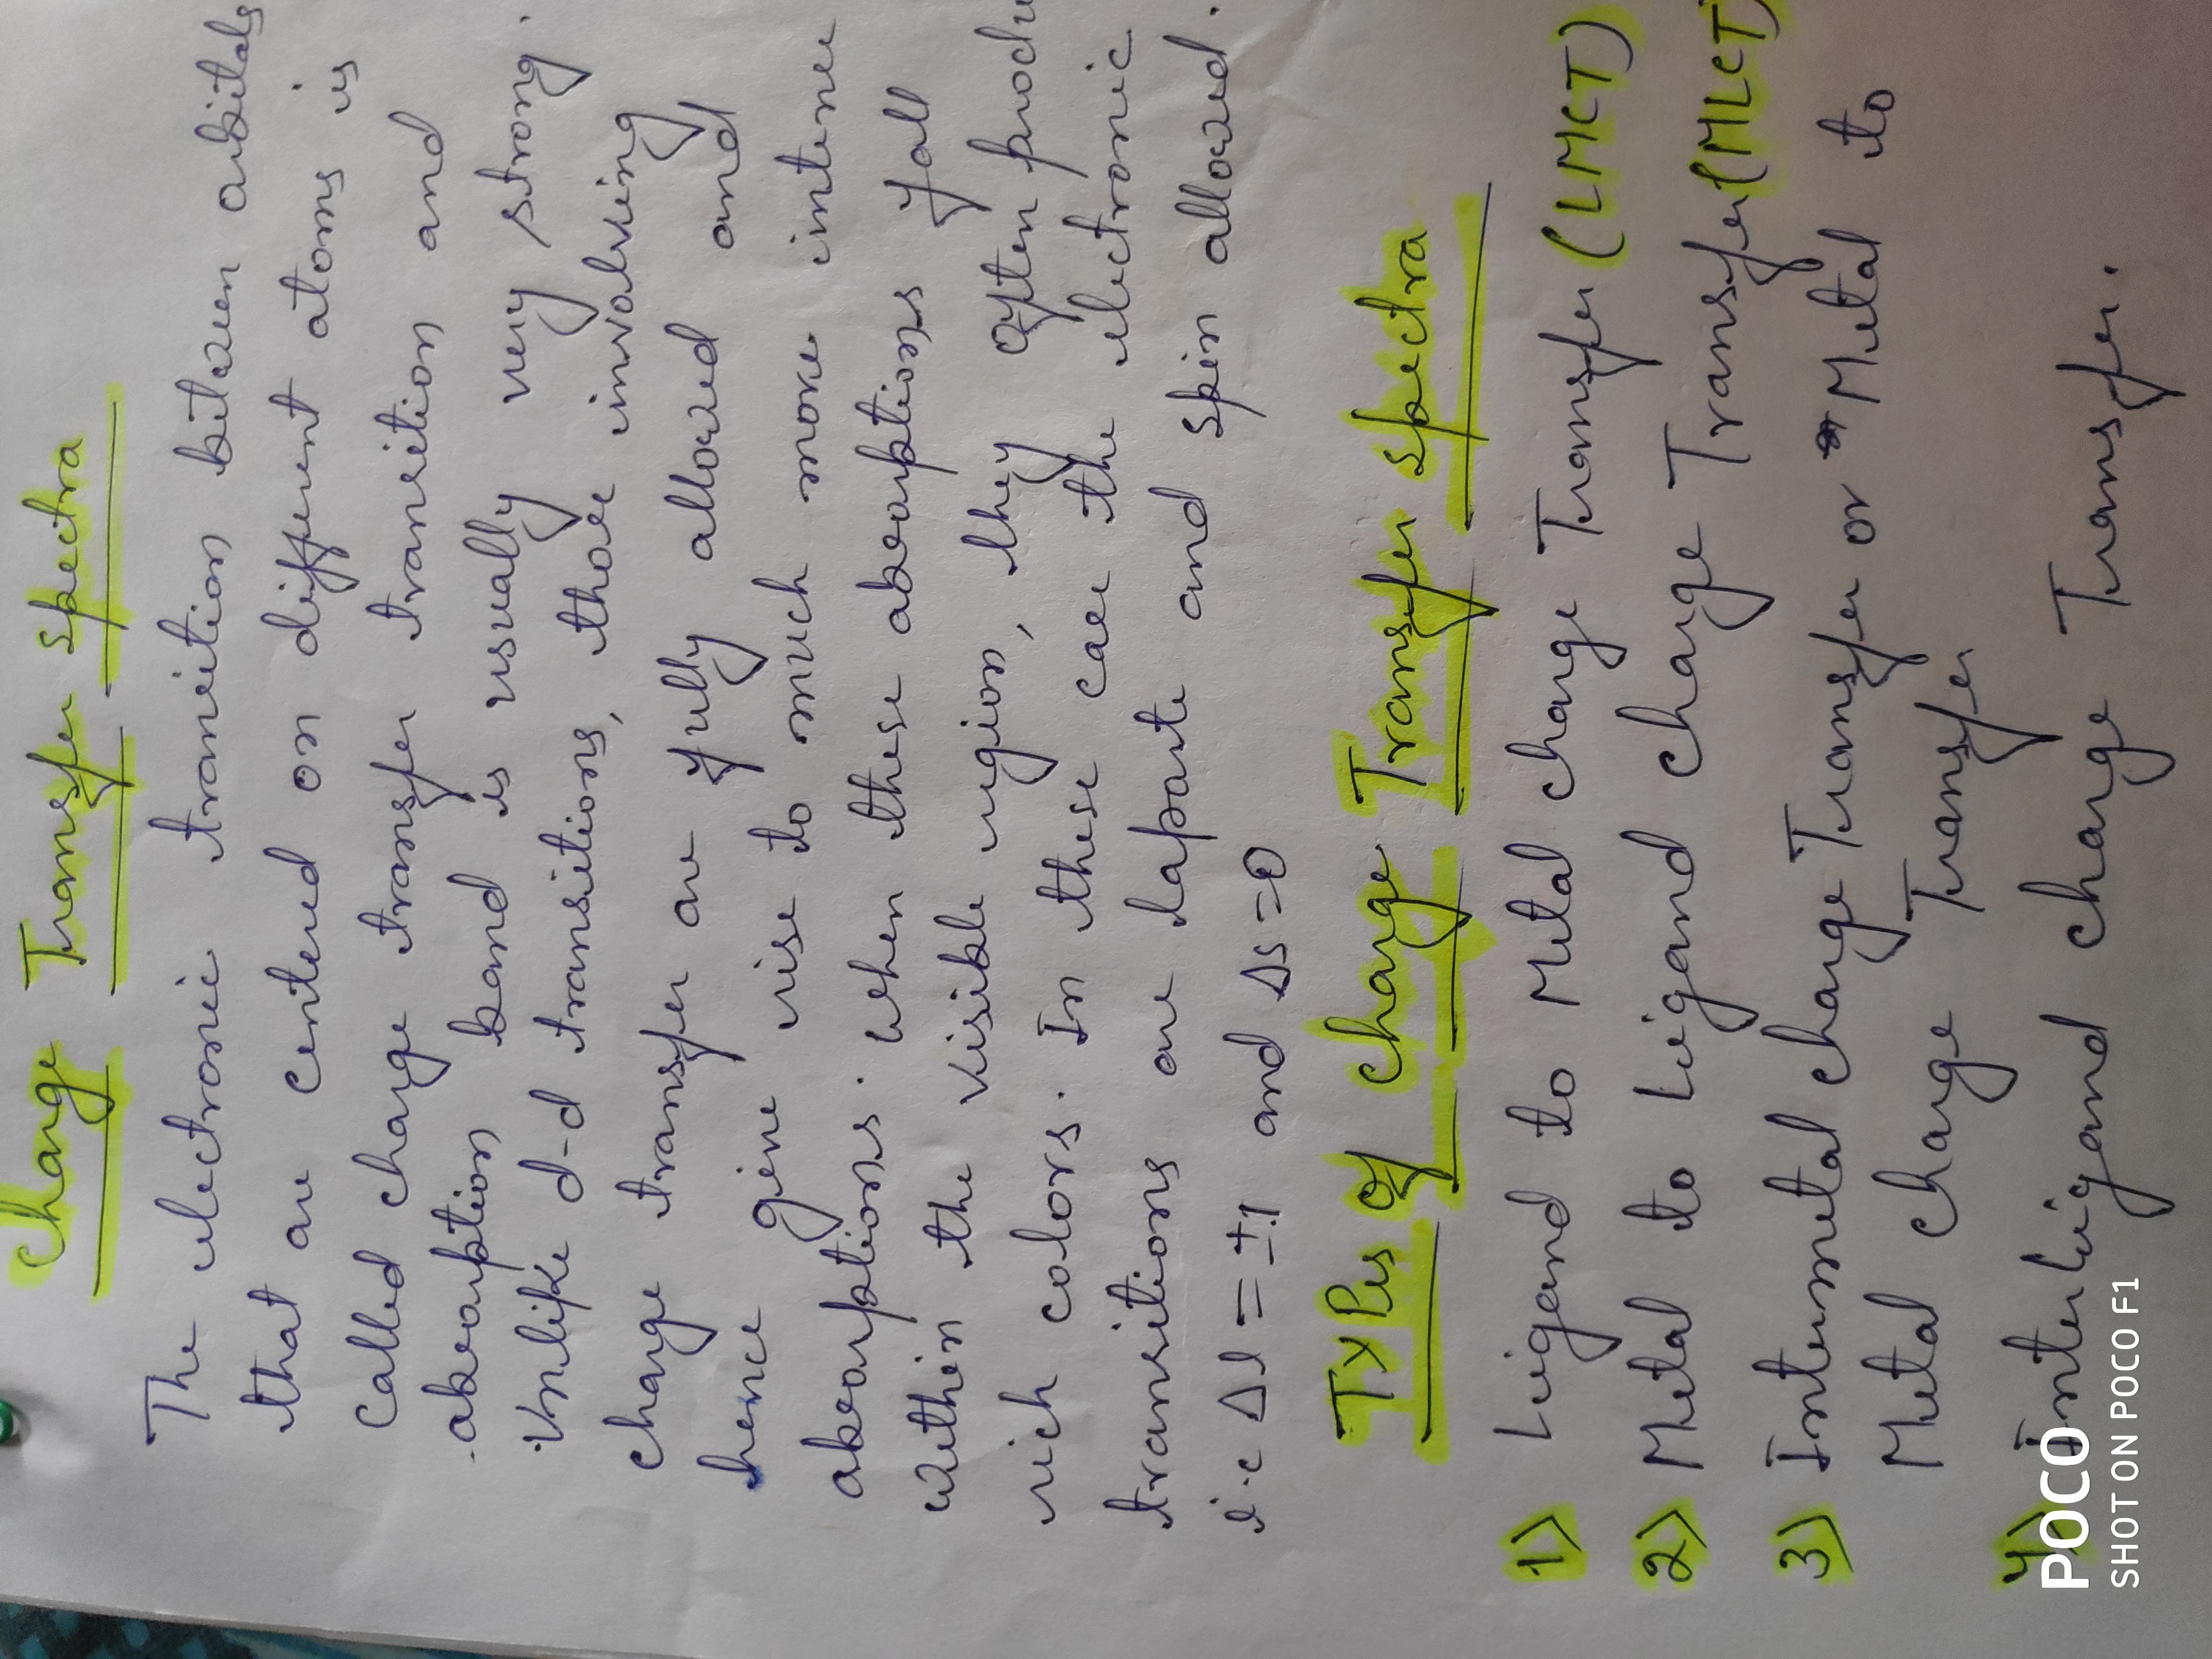 Charge Transfer spectra
The electronic transition between orbitals
that are centered on different atoms is
called charge transfer transition and
absorption band is usually very strong.
Unlike d-d transitions, those involving
charge transfer are fully allowed and
hence give rise to much more intense
absorptions. when these absorptions fall
within the visible region, they often produ
rich colors. In these case the electronic
transitions are Laporte and spin allowed.
i.e Δl = ±1 and Δs = 0
TyPes of charge Transfer spectra
1) Ligand to Metal charge Transfer (LMCT)
2) Metal to Ligand charge Transfer (MLCT)
3) Intermetal charge Transfer or Metal to
Metal charge Transfer
4) Interligand charge Transfer.
POCO
SHOT ON POCO F1